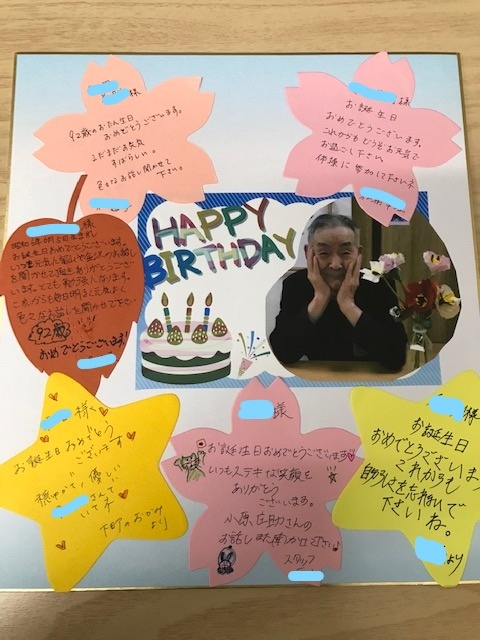 様
92歳のお誕生日
おめでとうございます。
まだまだお元気
すばらしい。
色々なお話し聞かせて
下さい。
様
お誕生日
おめでとうございます。
これからもどうぞお元気で
お過ごし下さい。
体操に
下さいネ
様
お誕生日おめでとうございます。
ありがとうござい
ます。とても勉強になります。
これからも毎日明るく元気よく
色々なお話しを聞かせて下さい
92歳
おめでとうございます!
HAPPY
BIRTHDAY
様へ
お誕生日おめでとう
ございます
穏やかで優しい
さんで
いてネ
下町のおかみ
より
様
お誕生日おめでとうございます
いつもステキな笑顔を
ありがとう
ございます。
小原庄助さんの
お話しまた聞かせて下さい♪
スタッフ
様
お誕生日
おめでとうございます
これからも
を忘れないで
下さいね。
より